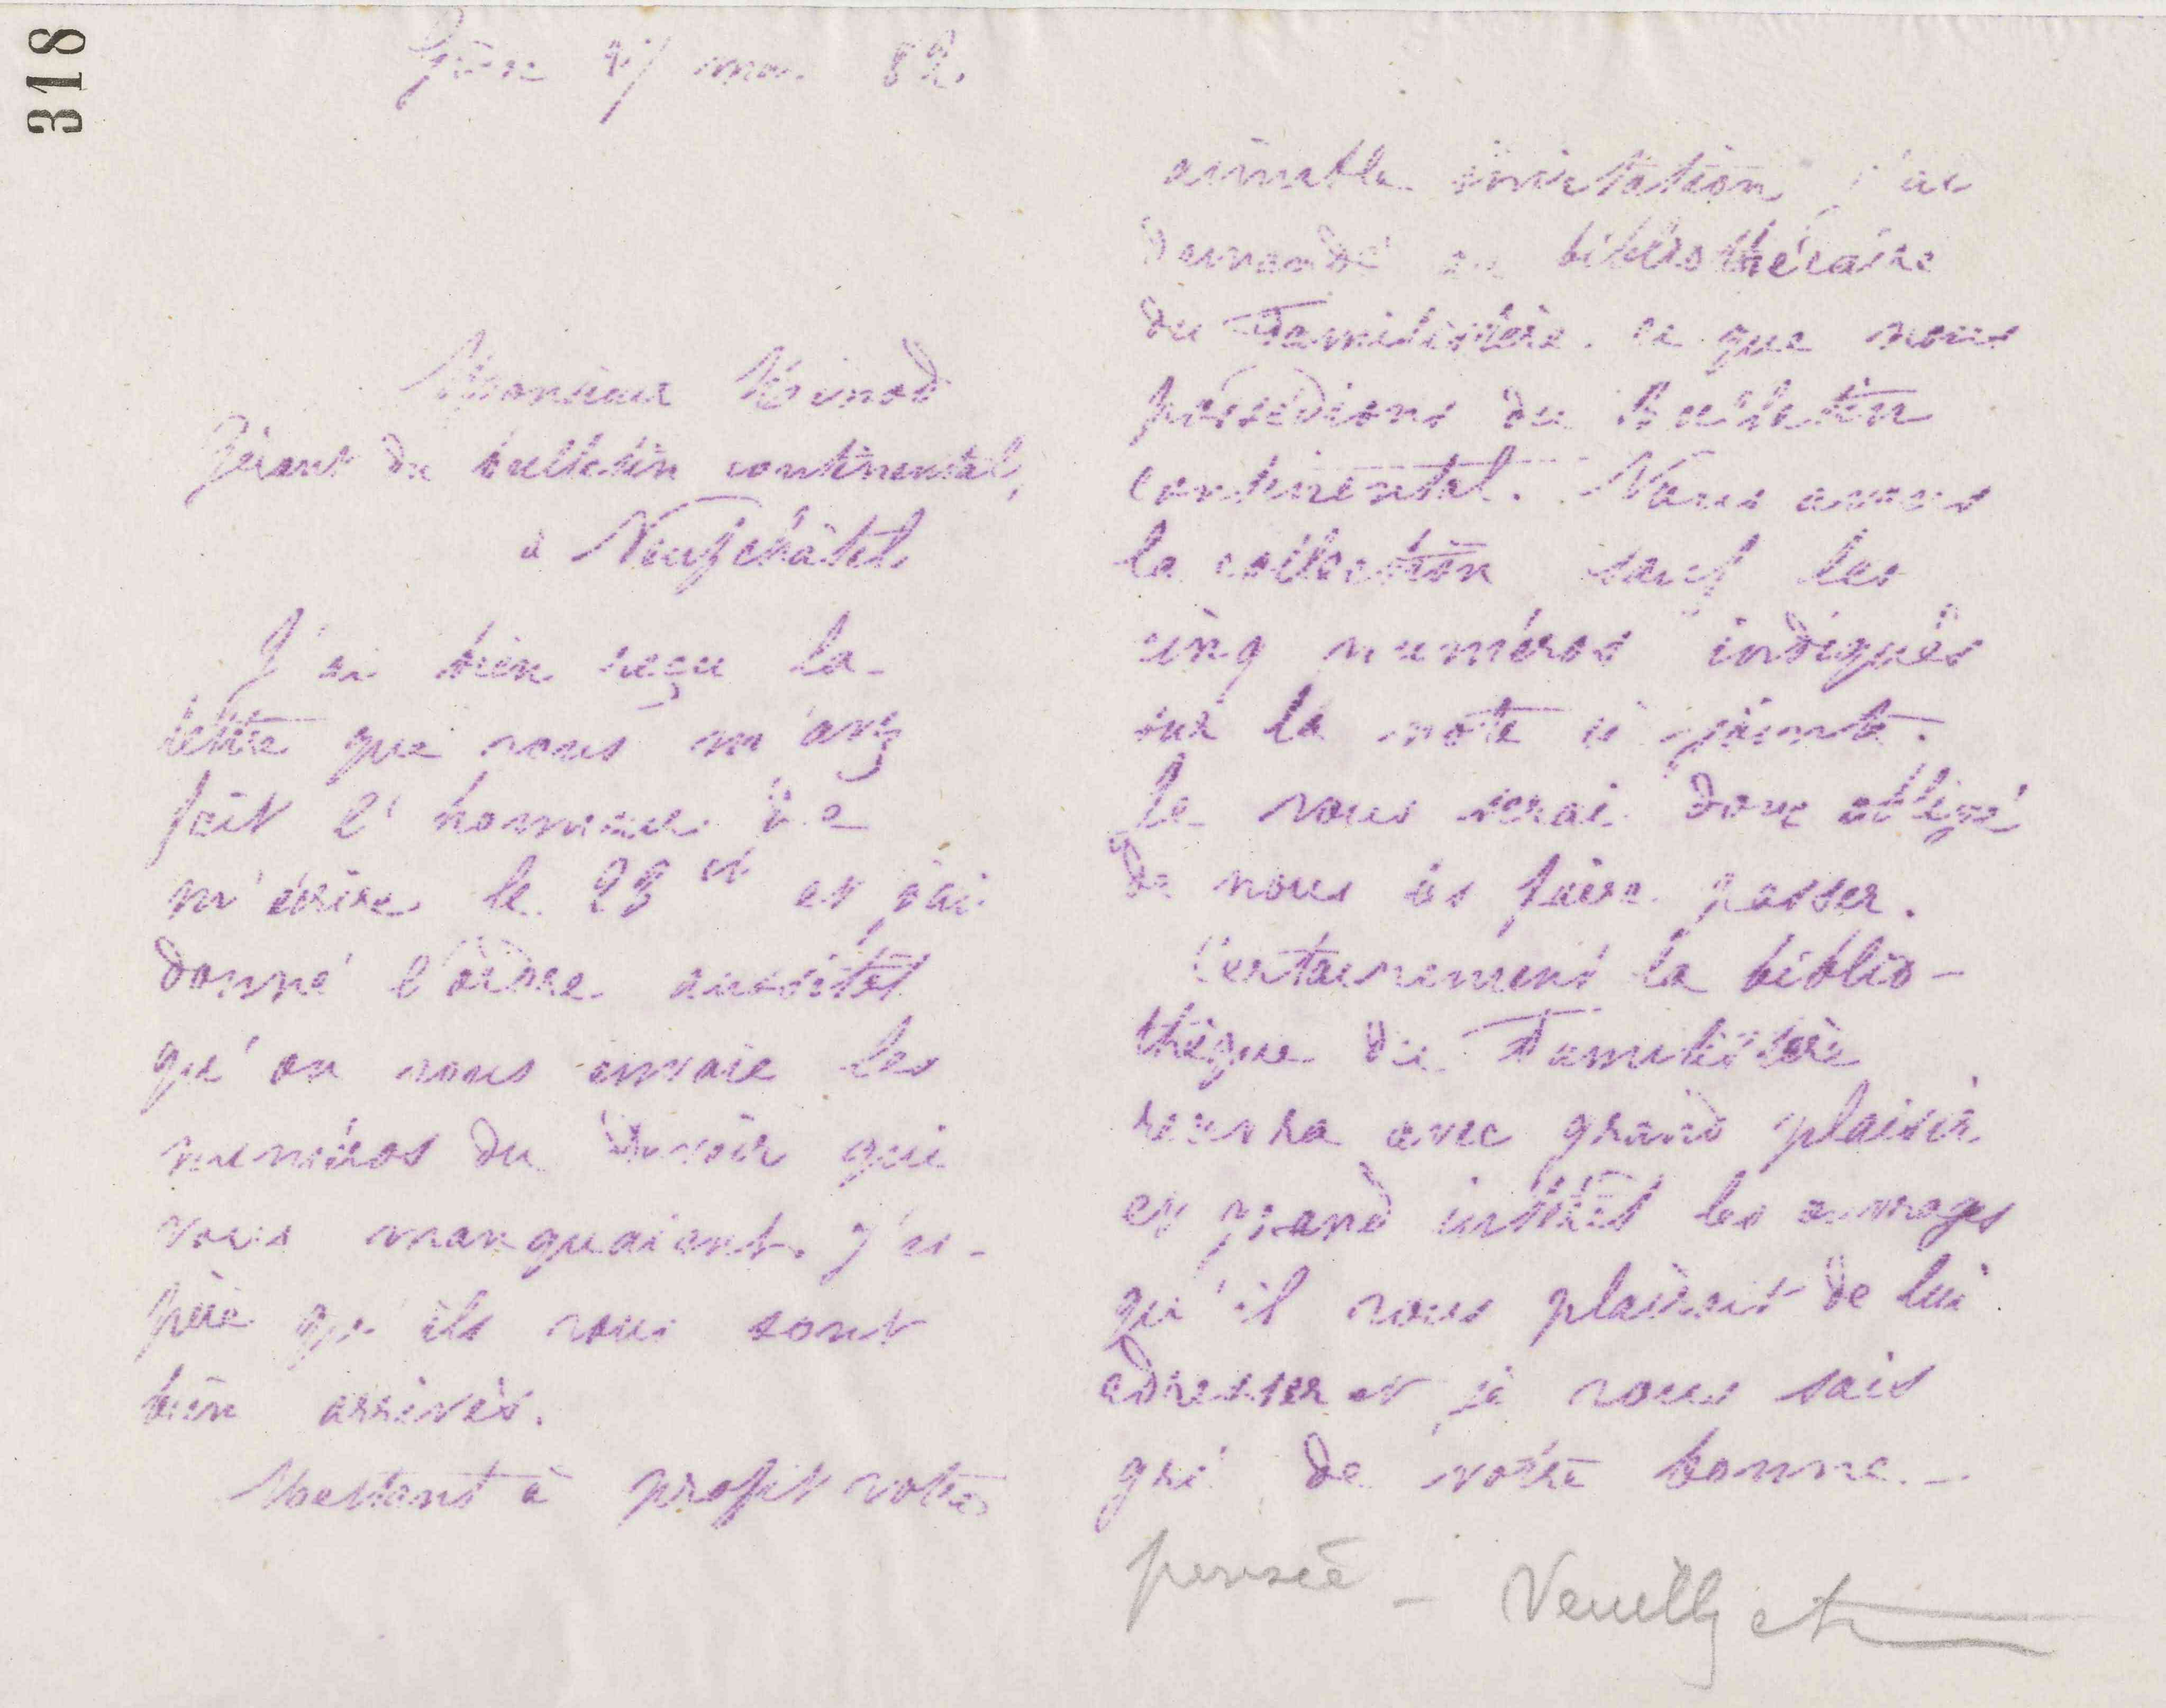 318
Guise 27 mai 82.
Monsieur Minod
Gérant du bulletin continental,
à Neufchâtel
J'ai bien reçu la
lettre que vous m'avez
fait l'honneur de
m'écrire le 23 ct et j'ai
donné l'ordre aussitôt
qu'on vous envoie les
numéros du Devoir qui
vous manquaient. J'es-
père qu'ils vous sont
bien arrivés.
Mettant à profit votre
aimable invitation j'ai
demandé au bibliothécaire
du Familistère ce que nous
possédions du Bulletin
continental. Nous avons
la collection sauf les
cinq numéros indiqués
sur la note ci jointe.
Je vous serai donc obligé
de nous les faire passer.
Certainement la biblio-
thèque du Familistère
recevra avec grand plaisir
et grand intérêt les ouvrages
qu'il vous plairait de lui
adresser et je vous sais
gré de votre bonne
pensée - Veuillez et